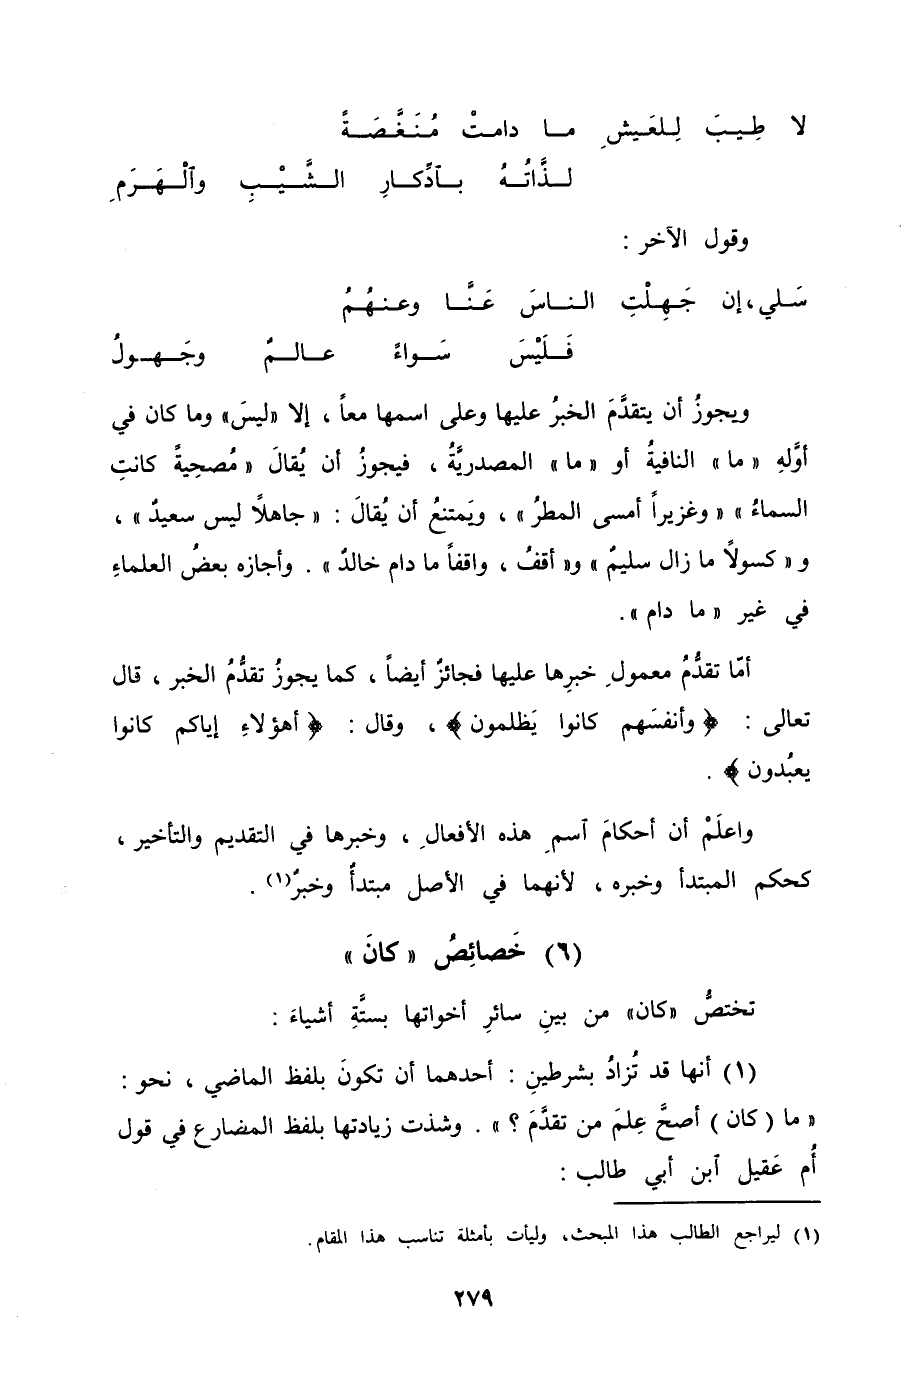 لا طِيبَ لِلعَيشِ ما دامتْ مُنَغَّصَةً
لذَّاتُهُ بآدِّكارِ الشَّيْبِ وآلْهَرَمِ
وقول الآخر :
سَلي، إن جَهِلْتِ الناسَ عَنَّا وعنهُمُ
فَلَيْسَ سَواءً عالمٌ وجَهولُ
ويجوزُ أن يتقدَّمَ الخبرُ عليها وعلى اسمها معاً ، إلا «ليسَ» وما كان في
أوَّلهِ « ما » النافيةُ أو « ما » المصدريَّةُ ، فيجوزُ أن يُقالَ « مُصحِيةً كانتِ
السماءُ » « وغزيراً أمسى المطرُ » ، ويَمتنعُ أن يُقالَ : « جاهلًا ليس سعيدٌ » ،
و « كسولًا ما زال سليمٌ » و« أقفُ ، واقفاً ما دام خالدٌ » . وأجازه بعضُ العلماءِ
في غير « ما دام ».
أمّا تقدُّمُ معمولِ خبرِها عليها فجائزٌ أيضاً ، كما يجوزُ تقدُّمُ الخبر ، قال
تعالى : ﴿ وأنفسَهم كانوا يَظلمون ﴾ ، وقال : ﴿ أهؤلاءِ إياكم كانوا
يعبُدون ﴾ .
واعلَمْ أن أحكامَ آسمِ هذه الأفعالِ ، وخبرها في التقديم والتأخير ،
كحكم المبتدأ وخبره ، لأنهما في الأصل مبتدأٌ وخبرٌ(١) .
(٦) خَصائِصُ « كانَ »
تختصُّ «كان» من بينِ سائرِ أخواتها بستَّةِ أشياءَ :
(١) أنها قد تُزادُ بشرطينِ : أحدهما أن تكونَ بلفظ الماضي ، نحو :
« ما ( كان ) أصحَّ عِلمَ من تقدَّمَ ؟ » . وشذت زيادتها بلفظ المضارع في قول
أُم عَقيل آبن أبي طالب :
(١) ليراجع الطالب هذا المبحث، وليأت بأمثلة تناسب هذا المقام.
٢٧٩